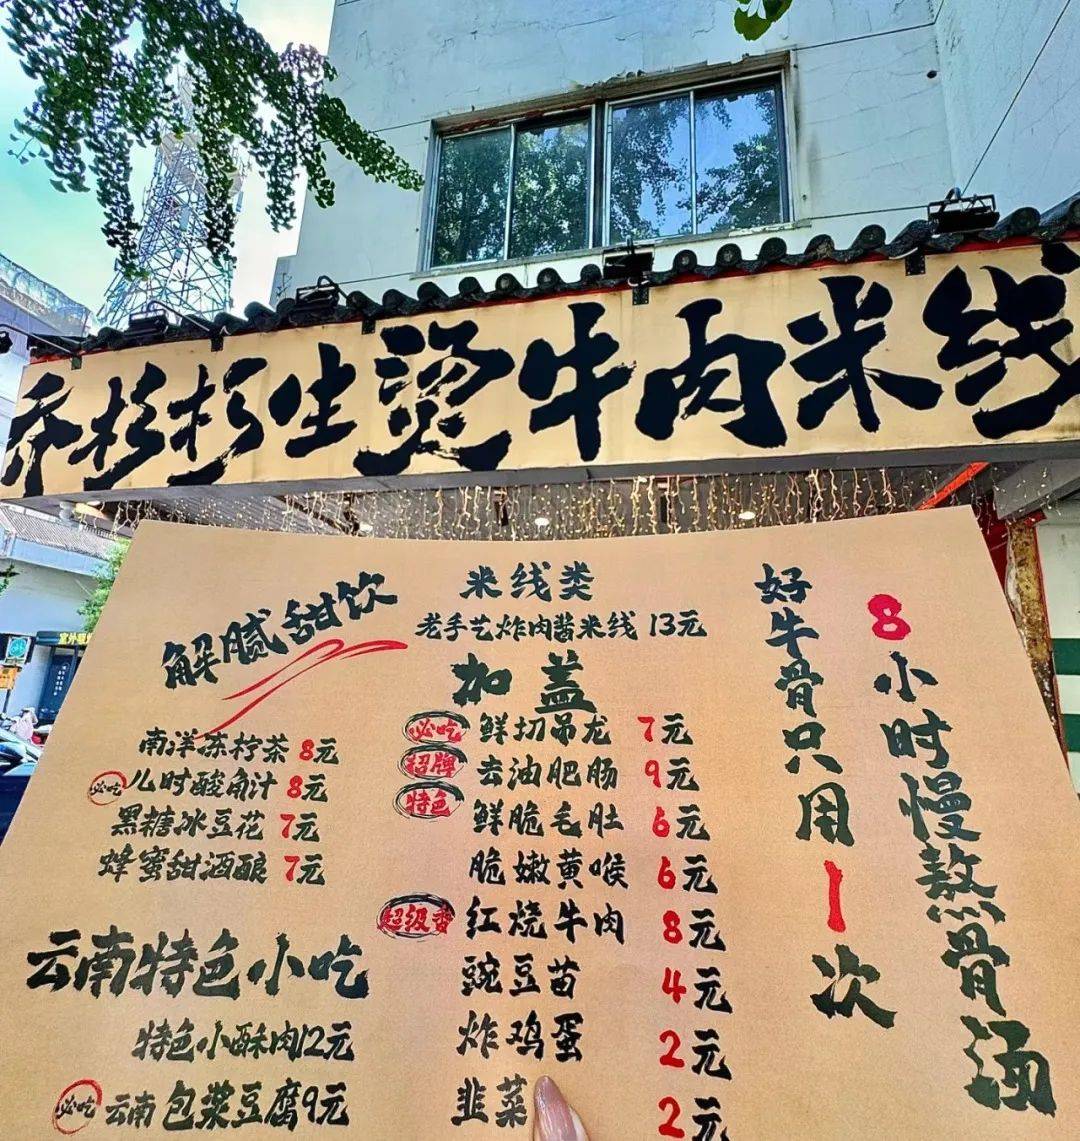 乔杉杉生烫牛肉米线
室外吸烟
解腻甜饮
南洋冻柠茶 8元
必吃 儿时酸角汁 8元
黑糖冰豆花 7元
蜂蜜甜酒酿 7元
云南特色小吃
特色小酥肉12元
必吃 云南包浆豆腐9元
米线类
老手艺炸肉酱米线 13元
加盖
必吃 鲜切吊龙 7元
招牌 去油肥肠 9元
特色 鲜脆毛肚 6元
脆嫩黄喉 6元
超级香 红烧牛肉 8元
豌豆苗 4元
炸鸡蛋 2元
韭菜 2元
好牛骨只用1次
8小时慢熬骨汤